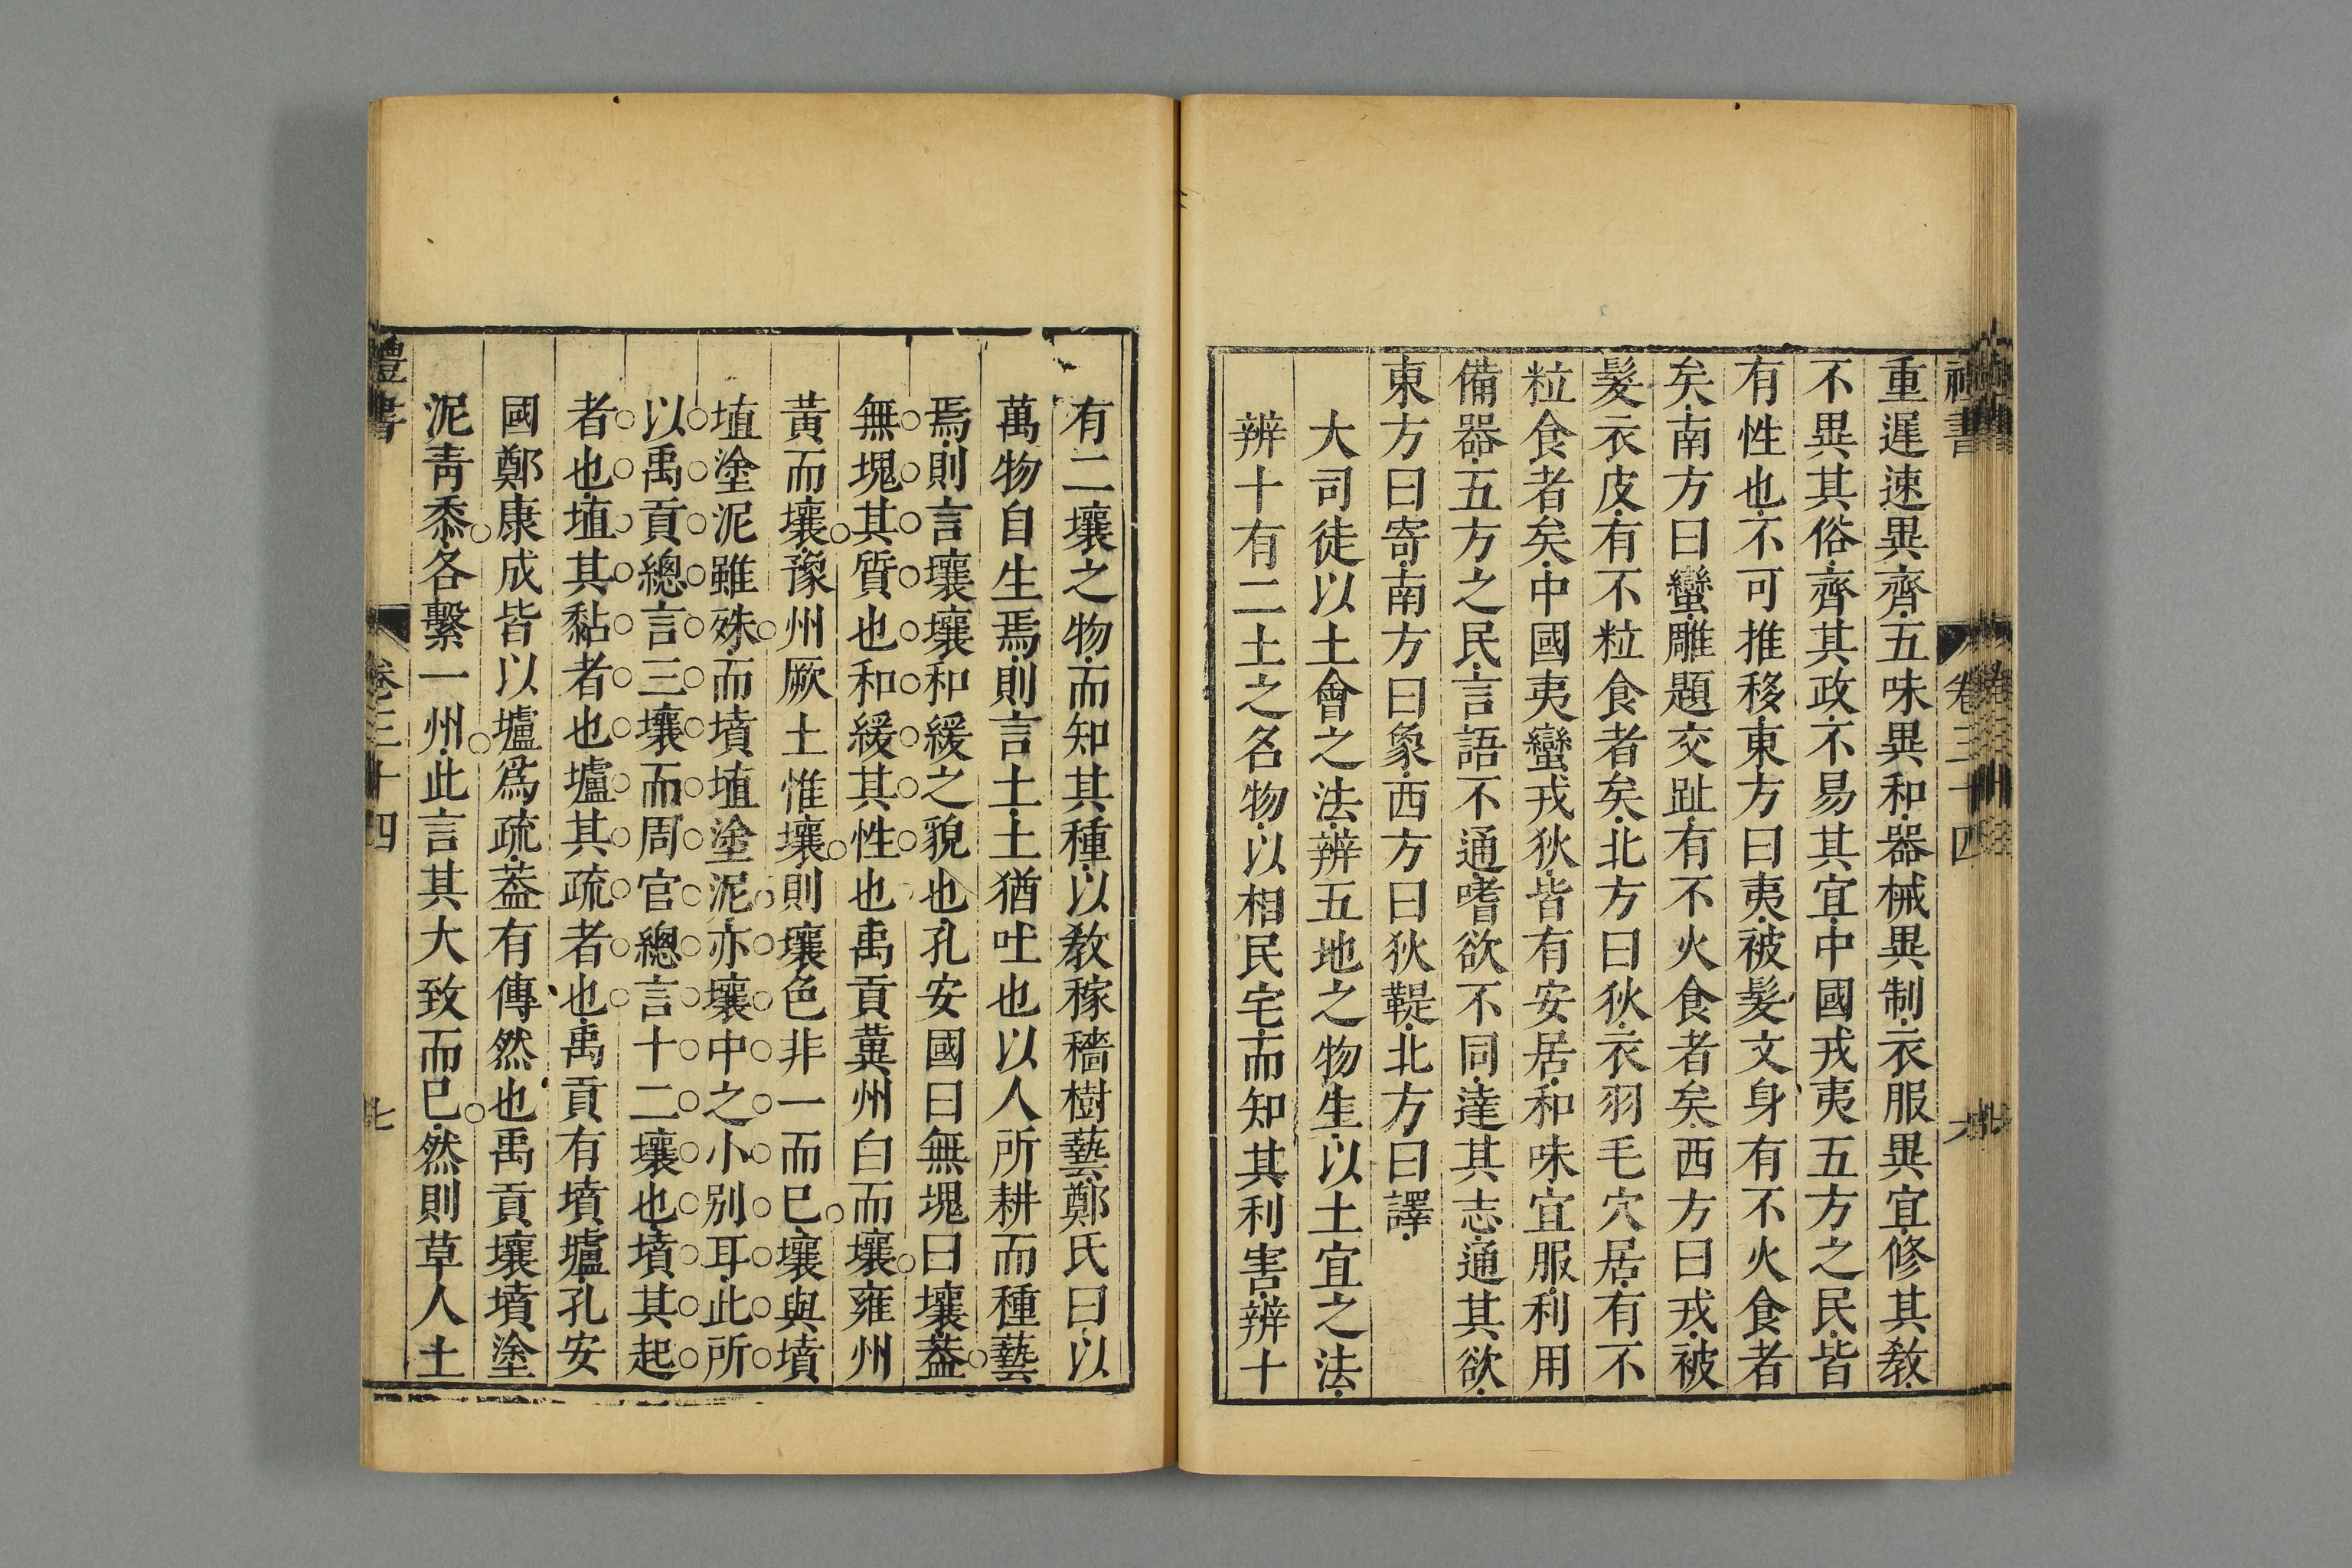 重遲速異齊五味異和器械異制衣服異宜修其教
不異其俗齊其政不易其宜中國戎夷五方之民皆
有性也不可推移東方曰夷被髮文身有不火食者
矣南方曰蠻雕題交趾有不火食者矣西方曰戎被
髮衣皮有不粒食者矣北方曰狄衣羽毛穴居有不
粒食者矣中國夷蠻戎狄皆有安居和味宜服利用
備器五方之民言語不通嗜欲不同達其志通其欲
東方曰寄南方曰象西方曰狄鞮北方曰譯
大司徒以土會之法辨五地之物生以土宜之法
辨十有二土之名物以相民宅而知其利害辨十
有二壤之物而知其種以敎稼穡樹藝鄭氏曰以
萬物自生焉則言土土猶吐也以人所耕而種藝
焉則言壤壤和緩之貌也孔安國曰無塊曰壤蓋
無塊其質也和緩其性也禹貢冀州白而壤雍州
黃而壤豫州厥土惟壤則壤色非一而已壤與墳
埴塗泥雖殊而墳埴塗泥亦壤中之小別耳此所
以禹貢總言三壤而周官總言十二壤也墳其起
者也埴其黏者也壚其疏者也禹貢有墳壚孔安
國鄭康成皆以壚爲疏蓋有傳然也禹貢壤墳塗
泥靑黍各繫一州此言其大致而已然則草人土
禮書 卷三十四 七